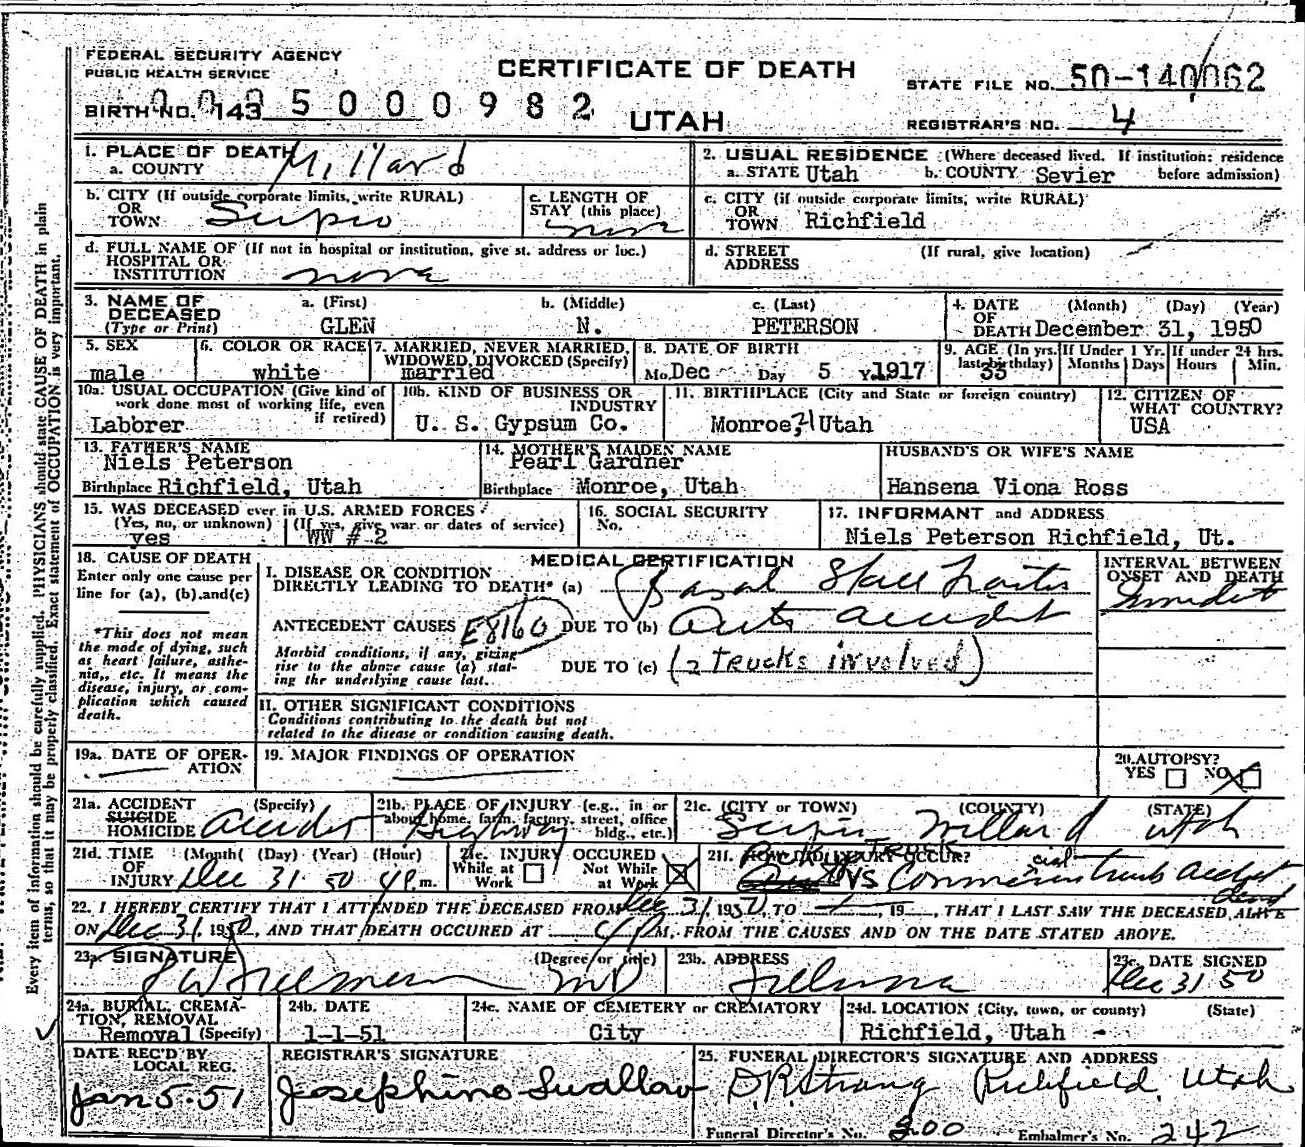 FEDERAL SECURITY AGENCY
PUBLIC HEALTH SERVICE
CERTIFICATE OF DEATH
STATE FILE NO. 50-140062
BIRTH NO. 143 5000982
UTAH
REGISTRAR'S NO. 4
Every item of information should be carefully supplied. PHYSICIANS should state CAUSE OF DEATH in plain
terms, so that it may be properly classified. Exact statement of OCCUPATION is very important.
1. PLACE OF DEATH
a. COUNTY Millard
2. USUAL RESIDENCE (Where deceased lived. If institution: residence
a. STATE Utah b. COUNTY Sevier before admission)
b. CITY (If outside corporate limits, write RURAL)
OR
TOWN Scipio
c. LENGTH OF
STAY (this place)
c. CITY (if outside corporate limits, write RURAL)
OR
TOWN Richfield
d. FULL NAME OF (If not in hospital or institution, give st. address or loc.)
HOSPITAL OR
INSTITUTION
d. STREET (If rural, give location)
ADDRESS
3. NAME OF DECEASED (Type or Print)
a. (First) b. (Middle) c. (Last)
GLEN N. PETERSON
4. DATE OF DEATH (Month) (Day) (Year)
December 31, 1950
5. SEX
male
6. COLOR OR RACE
white
7. MARRIED, NEVER MARRIED,
WIDOWED, DIVORCED (Specify)
married
8. DATE OF BIRTH
Mo. Dec Day 5 Y. 1917
9. AGE (In yrs. last birthday)
33
If Under 1 Yr.
Months Days
If under 24 hrs.
Hours Min.
10a. USUAL OCCUPATION (Give kind of
work done most of working life, even
if retired)
Laborer
10b. KIND OF BUSINESS OR
INDUSTRY
U. S. Gypsum Co.
11. BIRTHPLACE (City and State or foreign country)
Monroe, 21 Utah
12. CITIZEN OF
WHAT COUNTRY?
USA
13. FATHER'S NAME
Niels Peterson
Birthplace Richfield, Utah
14. MOTHER'S MAIDEN NAME
Pearl Gardner
Birthplace Monroe, Utah
HUSBAND'S OR WIFE'S NAME
Hansena Viona Ross
15. WAS DECEASED ever in U.S. ARMED FORCES
(Yes, no, or unknown) (If yes, give war or dates of service)
yes WW # 2
16. SOCIAL SECURITY
No.
17. INFORMANT and ADDRESS
Niels Peterson Richfield, Ut.
18. CAUSE OF DEATH
Enter only one cause per
line for (a), (b) and (c)
*This does not mean
the mode of dying, such
as heart failure, asthe-
nia, etc. It means the
disease, injury, or com-
plication which caused
death.
MEDICAL CERTIFICATION
I. DISEASE OR CONDITION
DIRECTLY LEADING TO DEATH* (a) Basal Skull
ANTECEDENT CAUSES E8160 DUE TO (b) Auto accident
Morbid conditions, if any, giving
rise to the above cause (a) stat-
ing the underlying cause last.
DUE TO (c) (2 trucks involved)
II. OTHER SIGNIFICANT CONDITIONS
Conditions contributing to the death but not
related to the disease or condition causing death.
INTERVAL BETWEEN
ONSET AND DEATH
19a. DATE OF OPER-
ATION
19. MAJOR FINDINGS OF OPERATION
20. AUTOPSY?
YES NO X
21a. ACCIDENT (Specify)
SUICIDE
HOMICIDE accident
21b. PLACE OF INJURY (e.g., in or
about home, farm, factory, street, office
bldg., etc.)
Highway
21c. (CITY or TOWN) (COUNTY) (STATE)
Scipio Millard Utah
21d. TIME (Month) (Day) (Year) (Hour)
OF
INJURY Dec 31 50 4 P m.
21e. INJURY OCCURED
While at Work Not While at Work X
21f. HOW DID INJURY OCCUR?
Truck
VS Commercial truck accident
22. I HEREBY CERTIFY THAT I ATTENDED THE DECEASED FROM Dec 31, 1950, TO , 19 , THAT I LAST SAW THE DECEASED ALIVE dead
ON Dec 31 1950, AND THAT DEATH OCCURED AT 4 P M. FROM THE CAUSES AND ON THE DATE STATED ABOVE.
23a. SIGNATURE (Degree or title)
MD
23b. ADDRESS
23c. DATE SIGNED
Dec 31 50
24a. BURIAL, CREMA-
TION, REMOVAL
Removal (Specify)
24b. DATE
1-1-51
24c. NAME OF CEMETERY or CREMATORY
City
24d. LOCATION (City, town, or county) (State)
Richfield, Utah -
DATE REC'D BY
LOCAL REG.
Jan 5-51
REGISTRAR'S SIGNATURE
Josephine Swallow
25. FUNERAL DIRECTOR'S SIGNATURE AND ADDRESS
Richfield, Utah
Funeral Director's No. 300 Embalmer's No. 242